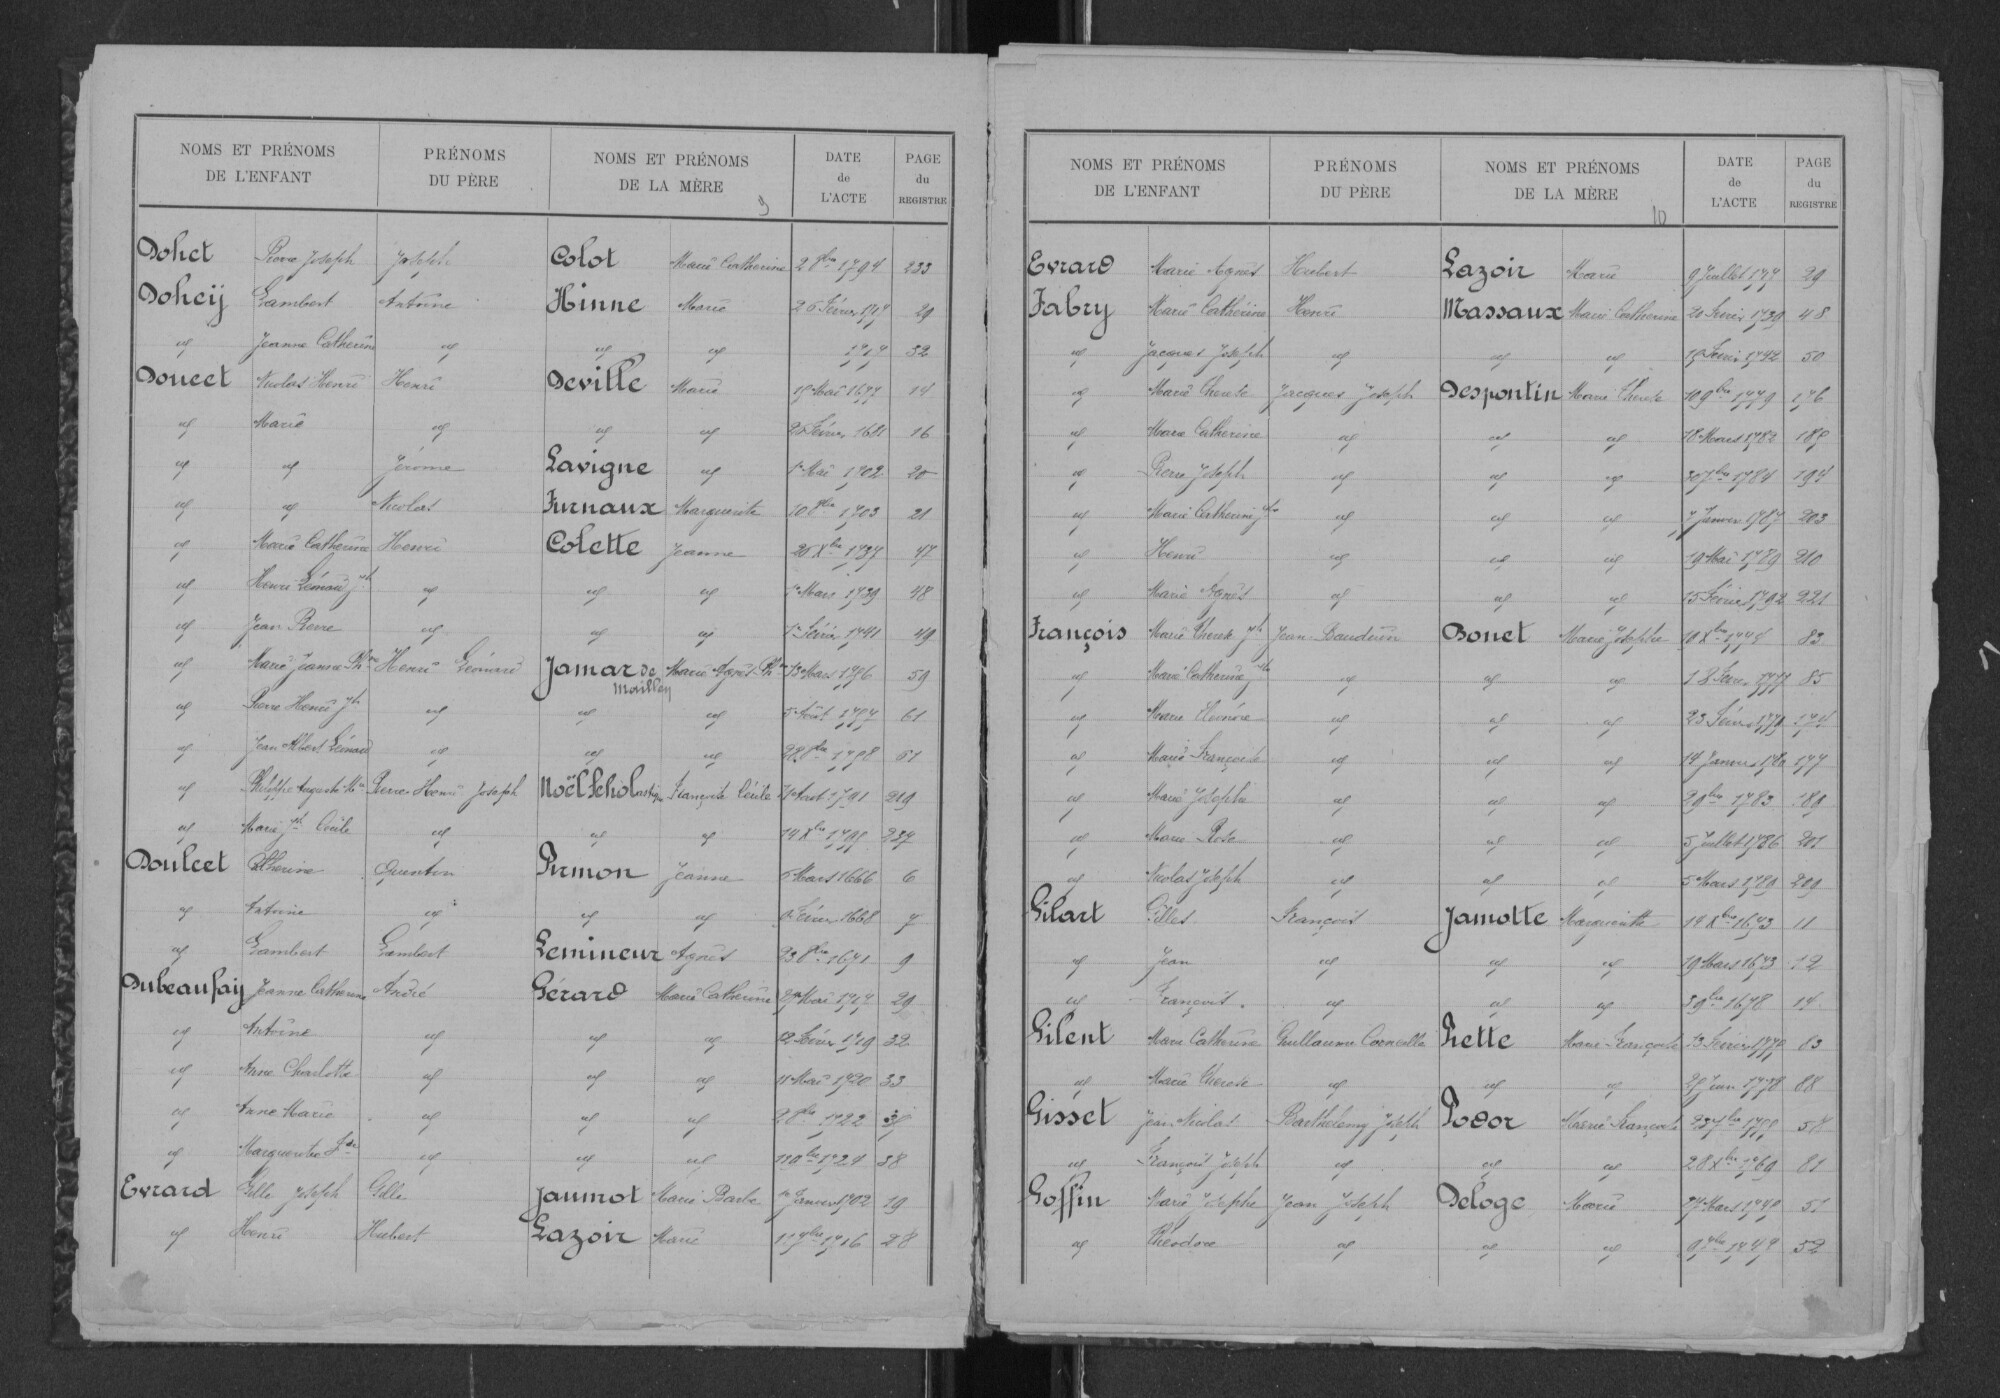 NOMS ET PRÉNOMS DE L'ENFANT PRÉNOMS DU PÈRE NOMS ET PRÉNOMS DE LA MÈRE DATE de L'ACTE PAGE du REGISTRE
9
Dohet Pierre Joseph Joseph Colot Marie Catherine 2 8bre 1794 233
Doheij Lambert Antoine Hinne Marie 26 Février 1717 29
" Jeanne Catherine " " " 1719 32
Doucet Nicolas Henri Henri Deville Marie Mai 1677 14
" Marie " " " 25 Février 1681 16
" " Jérome Lavigne " 1r Mai 1702 20
" " Nicolas Furnaux Marguerite 10 8bre 1703 21
" Marie Catherine Henri Colette Jeanne 20 Xbre 1737 47
" Henri Léonard Jh " " " 1r Mars 1739 48
" Jean Pierre " " " 1r Février 1741 49
" Marie Jeanne Ph Henri Léonard Jamar de Mailley Marie Agnès Ph Mars 1756 59
" Pierre Henri Jh " " " 5 Août 1757 61
" Jean Albert Léonard " " " 28 8bre 1758 61
" Philippe Auguste Pierre Henri Joseph Noël Scholastique Françoise Cécile Août 1791 219
" Marie Jh Cécile " " " 14 Xbre 1795 237
Doulcet Catherine Quentin Pirmon Jeanne 6 Mars 1666 6
" Antoine " " " Février 1668 7
" Lambert Lambert Lemineur Agnès 23 8bre 1671 9
Dubeaufaij Jeanne Catherine André Gérard Marie Catherine Mai 1717 29
" Antoine " " " 12 Février 1719 32
" Anne Charlotte " " " 11 Mai 1720 33
" Anne Marie " " " 2 8bre 1722 35
" Marguerite " " " 11 1724 38
Evrard Gille Joseph Gille Jaumot Marie Barbe Janvier 1702 19
" Henri Hubert Lazoir Marie 11 7bre 1716 28
NOMS ET PRÉNOMS DE L'ENFANT PRÉNOMS DU PÈRE NOMS ET PRÉNOMS DE LA MÈRE DATE de L'ACTE PAGE du REGISTRE
10
Evrard Marie Agnès Hubert Lazoir Marie 9 Juillet 29
Fabry Marie Catherine Henri Massaux Marie Catherine 20 Février 1739 48
" Jacques Joseph " " " Février 1742 50
" Marie Therese Jacques Joseph Despontin Marie Therese 10 9bre 1779 176
" Marie Catherine " " " 18 Mars 1782 185
" Pierre Joseph " " " 30 7bre 1784 194
" Marie Catherine " " " 7 Janvier 1787 203
" Henri " " " 19 Mai 1789 210
" Marie Agnès " " " 15 Février 1792 221
François Marie Therese Jh Jean Baudouin Donet Marie Josephe 10 Xbre 1775 83
" Marie Catherine " " " 18 Février 1777 85
" Marie " " " 23 Février
" Marie Françoise " " " 14 Janvier 1780 177
" Marie Josephe " " " 2 9bre 1783 189
" Marie Rose " " " 5 Juillet 1786 201
" Nicolas Joseph " " " 5 Mars 1789 209
Gilart Gilles François Jamotte Marguerite Xbre 1673 11
" Jean " " " 19 Mars 1673 12
" François " " " 3 9bre 1678 14
Gilent Marie Catherine Guillaume Corneille Piette Marie Françoise 13 Février 83
" Marie Therese " " " Juin 1778 88
Gisset Jean Nicolas Barthélemy Joseph Podor Marie Françoise 23 7bre 58
" François Joseph " " " 28 Xbre 1769 81
Goffin Marie Josephe Jean Joseph Deloge Marie 27 Mars 51
" Théodore " " " 52